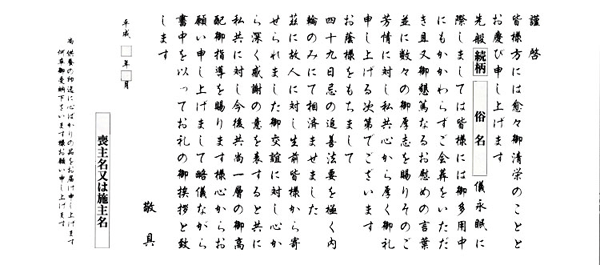 謹啓
皆様方には愈々御清栄のことと
お慶び申し上げます
先般 続柄 俗名 儀永眠に
際しましては皆様には御多用中
にもかかわらずご会葬をいただ
き且又御懇篤なるお慰めの言葉
並に数々の御厚志を賜りそのご
芳情に対し私共心から厚く御礼
申し上げる次第でございます
お蔭様をもちまして
四十九日忌の追善法要を極く内
輪のみにて相済ませました
茲に故人に対し生前皆様から寄
せられました御交誼に対し心か
ら深く感謝の意を表すると共に
私共に対し今後共尚一層の御高
配御指導を賜ります様心からお
願い申し上げまして略儀ながら
書中を以ってお礼の御挨拶と致
します
敬具
平成 年 月
喪主名又は施主名
尚供養の印迄に心ばかりの品をお届け申し上げます
何卒御受納下さいます様お願い申し上げます